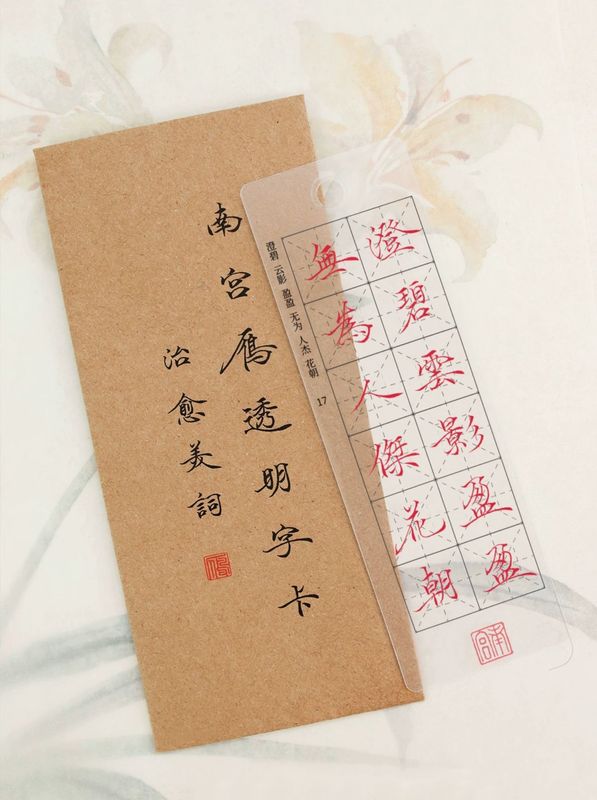 南宫鴈透明字卡
治愈美詞
澄碧雲影盈盈
無為人傑花朝
澄碧 云影 盈盈 无为 人杰 花朝 17
南宫